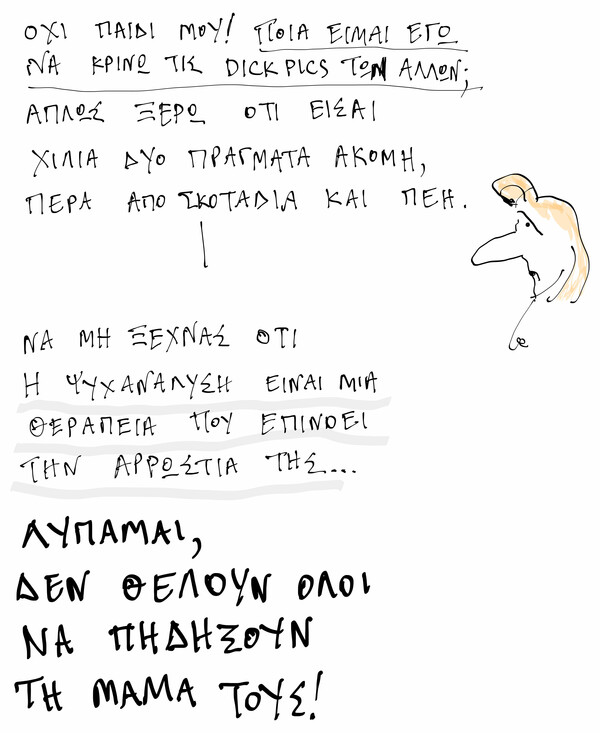 ΟΧΙ ΠΑΙΔΙ ΜΟΥ! ΠΟΙΑ ΕΙΜΑΙ ΕΓΩ
ΝΑ ΚΡΙΝΩ ΤΙΣ DICK PICS ΤΩΝ ΑΛΛΩΝ;
ΑΠΛΩΣ ΞΕΡΩ ΟΤΙ ΕΙΣΑΙ
ΧΙΛΙΑ ΔΥΟ ΠΡΑΓΜΑΤΑ ΑΚΟΜΗ,
ΠΕΡΑ ΑΠΟ ΣΚΟΤΑΔΙΑ ΚΑΙ ΠΕΗ.
ΝΑ ΜΗ ΞΕΧΝΑΣ ΟΤΙ
Η ΨΥΧΑΝΑΛΥΣΗ ΕΙΝΑΙ ΜΙΑ
ΘΕΡΑΠΕΙΑ ΠΟΥ ΕΠΙΝΟΕΙ
ΤΗΝ ΑΡΡΩΣΤΙΑ ΤΗΣ...
ΛΥΠΑΜΑΙ,
ΔΕΝ ΘΕΛΟΥΝ ΟΛΟΙ
ΝΑ ΠΗΔΗΞΟΥΝ
ΤΗ ΜΑΜΑ ΤΟΥΣ!